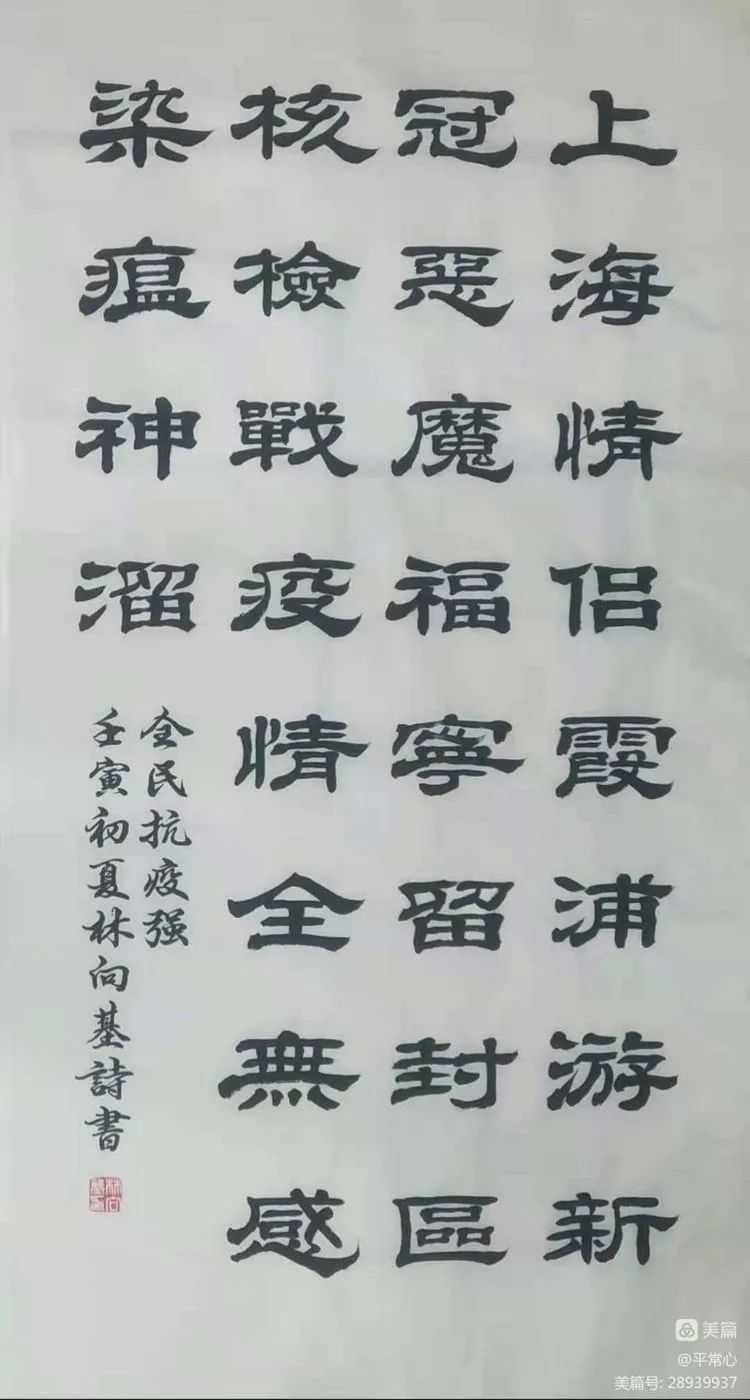 上海情侣霞浦游新
冠惡魔福寧留封區
核檢戰疫情全無感
染瘟神溜
全民抗疫强
壬寅初夏林向基詩書
美篇
@平常心
美篇号: 28939937